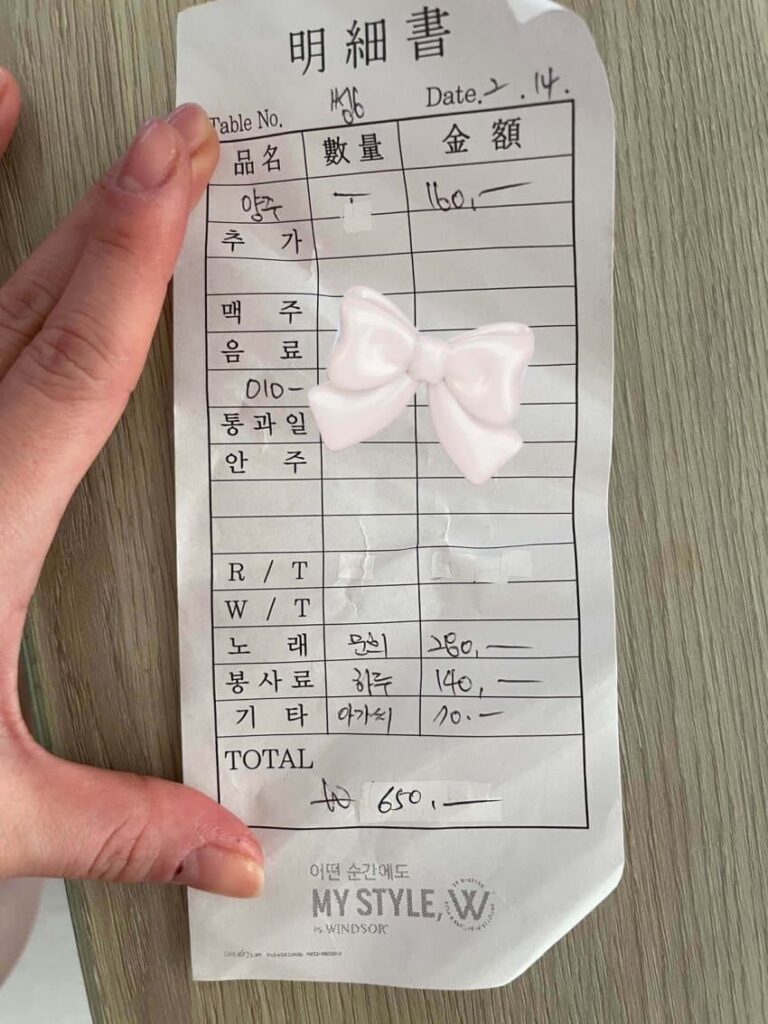 明細書
Table No. Date. 2 . 14.
品名 數量 金額
양주 一 160,—
추 가
맥 주
음 료
010-
통과일
안 주
R / T
W / T
노 래 문희 280,—
봉사료 하루 140,—
기 타 아가씨 70.-
TOTAL
650,—
어떤 순간에도
MY STYLE, W
By WINDSOR